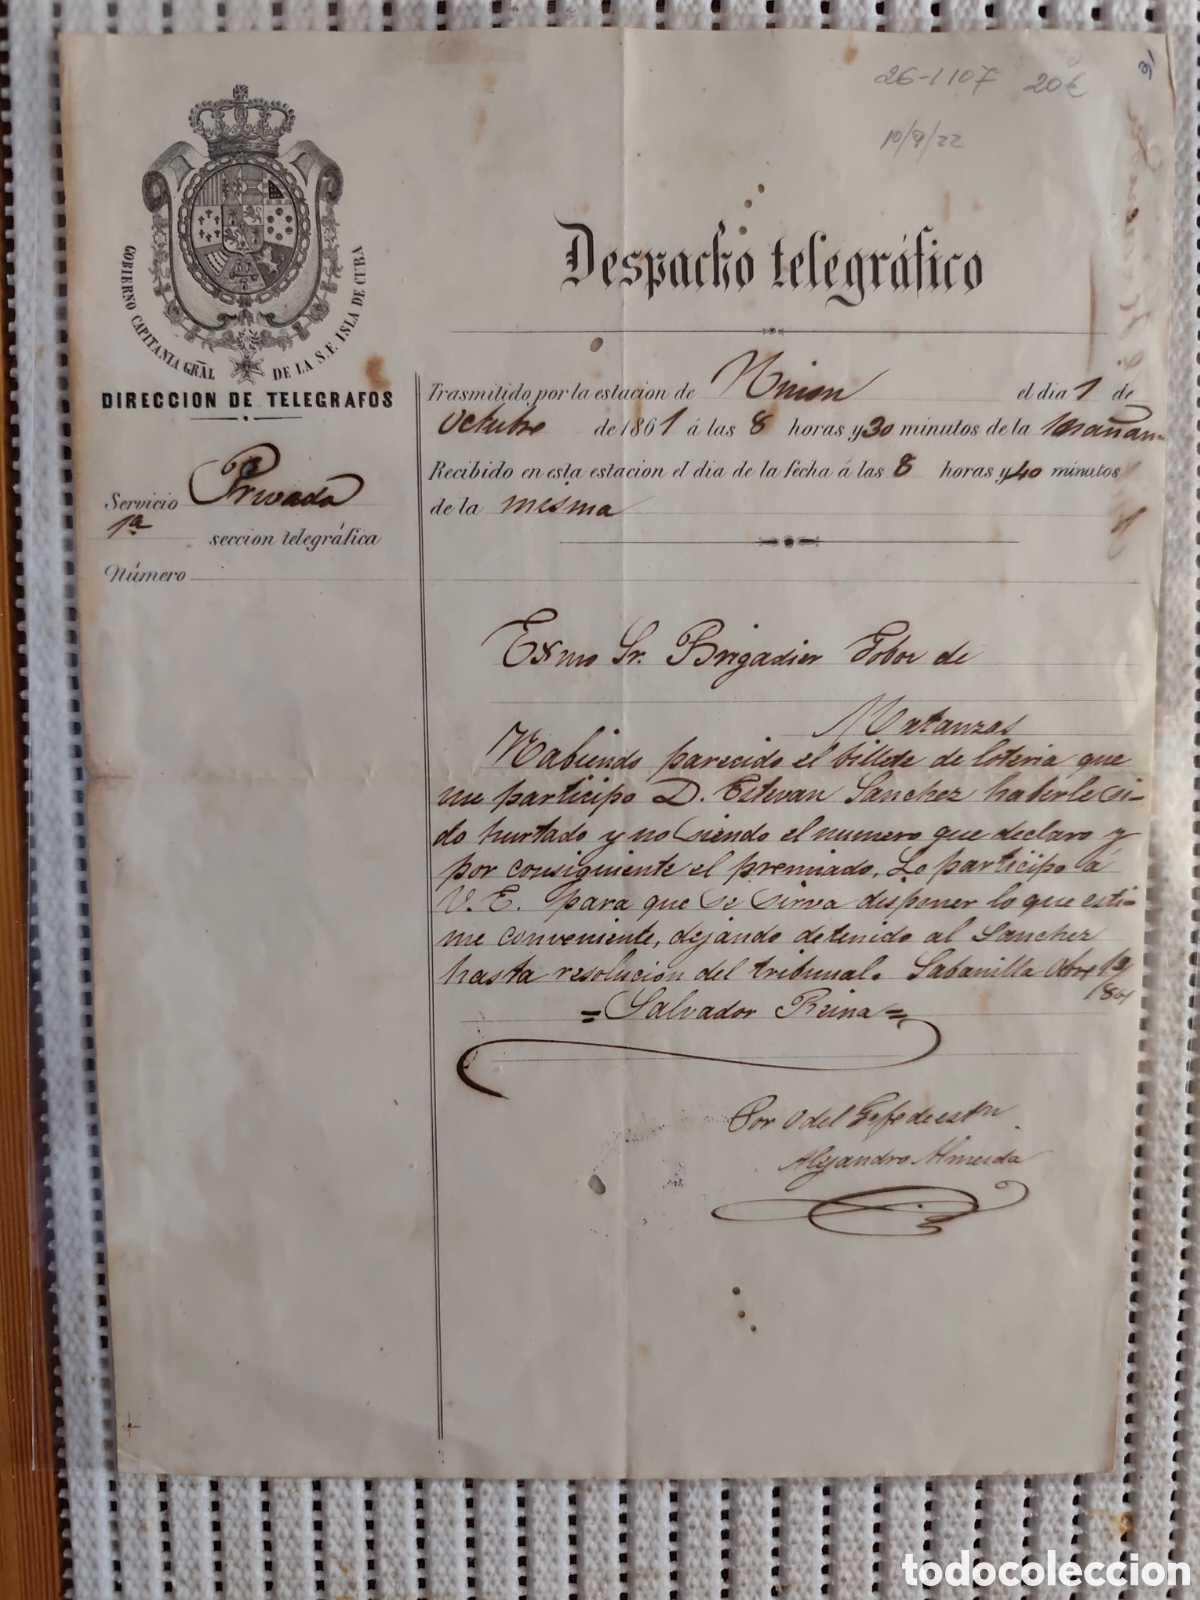 26-1107 20€
10/9/22
GOBIERNO CAPITANIA GRÀL DE LA S.F. ISLA DE CUBA
DIRECCION DE TELEGRAFOS
Servicio Privado
1ª seccion telegráfica
Número
Despacho telegráfico
Trasmitido por la estacion de Union el dia 1 de
Octubre de 1861 á las 8 horas y 30 minutos de la Mañana
Recibido en esta estacion el dia de la fecha á las 8 horas y 40 minutos
de la misma
Exmo Sr. Brigadier Gobor de
Matanzas
Habiendo parecido el billete de loteria que
me participo D. Estevan Sanchez haberle si-
do hurtado y no siendo el numero que declaro y
por consiguiente el premiado. Lo participo á
V. E. para que se sirva disponer lo que esti-
me conveniente, dejando detenido al Sanchez
hasta resolucion del tribunal. Sabanilla Obre 1º
/861
=Salvador Reina=
Por O del Gefe de estn
Alejandro Almeida
todocoleccion